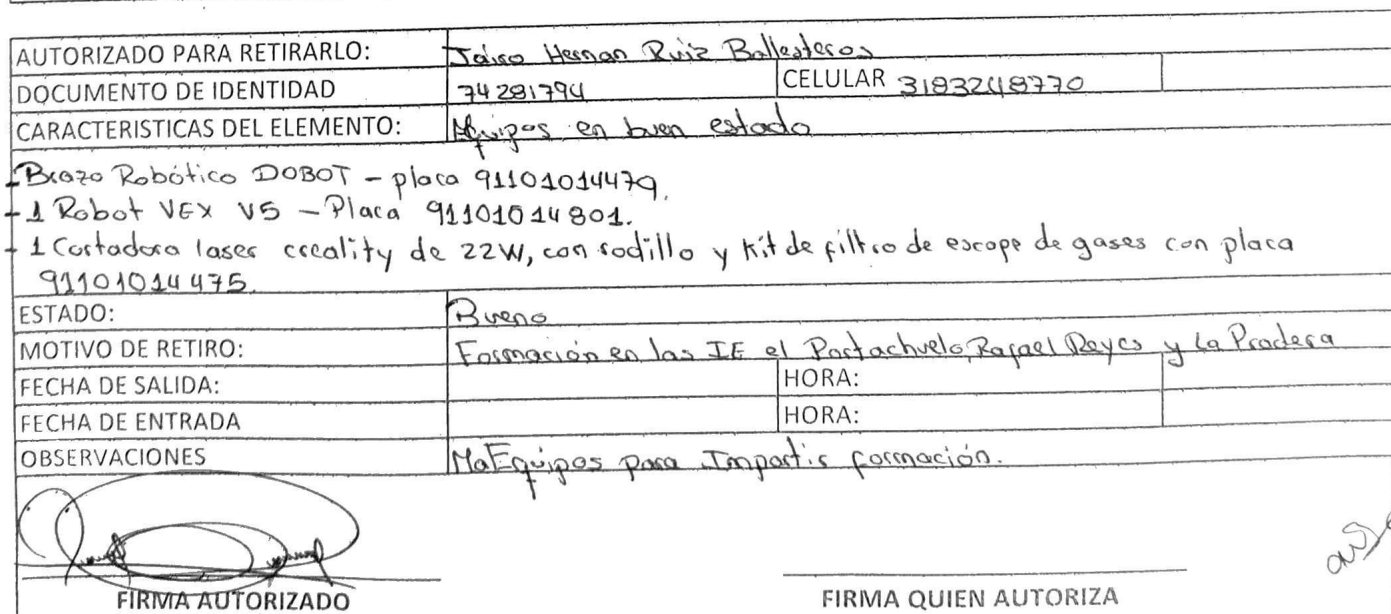 AUTORIZADO PARA RETIRARLO: Jairo Hernan Ruiz Ballesteros
DOCUMENTO DE IDENTIDAD 74281794 CELULAR 3183248770
CARACTERISTICAS DEL ELEMENTO: Equipos en buen estado
- Brazo Robótico DOBOT - placa 91101014479.
- 1 Robot VEX V5 - Placa 91101014801.
- 1 Cortadora laser creality de 22W, con rodillo y kit de filtro de escape de gases con placa
91101014475.
ESTADO: Bueno
MOTIVO DE RETIRO: Formación en las IE el Portachuelo, Rafael Reyes y La Pradera
FECHA DE SALIDA: HORA:
FECHA DE ENTRADA HORA:
OBSERVACIONES Equipos para Impartir formación.
FIRMA AUTORIZADO FIRMA QUIEN AUTORIZA